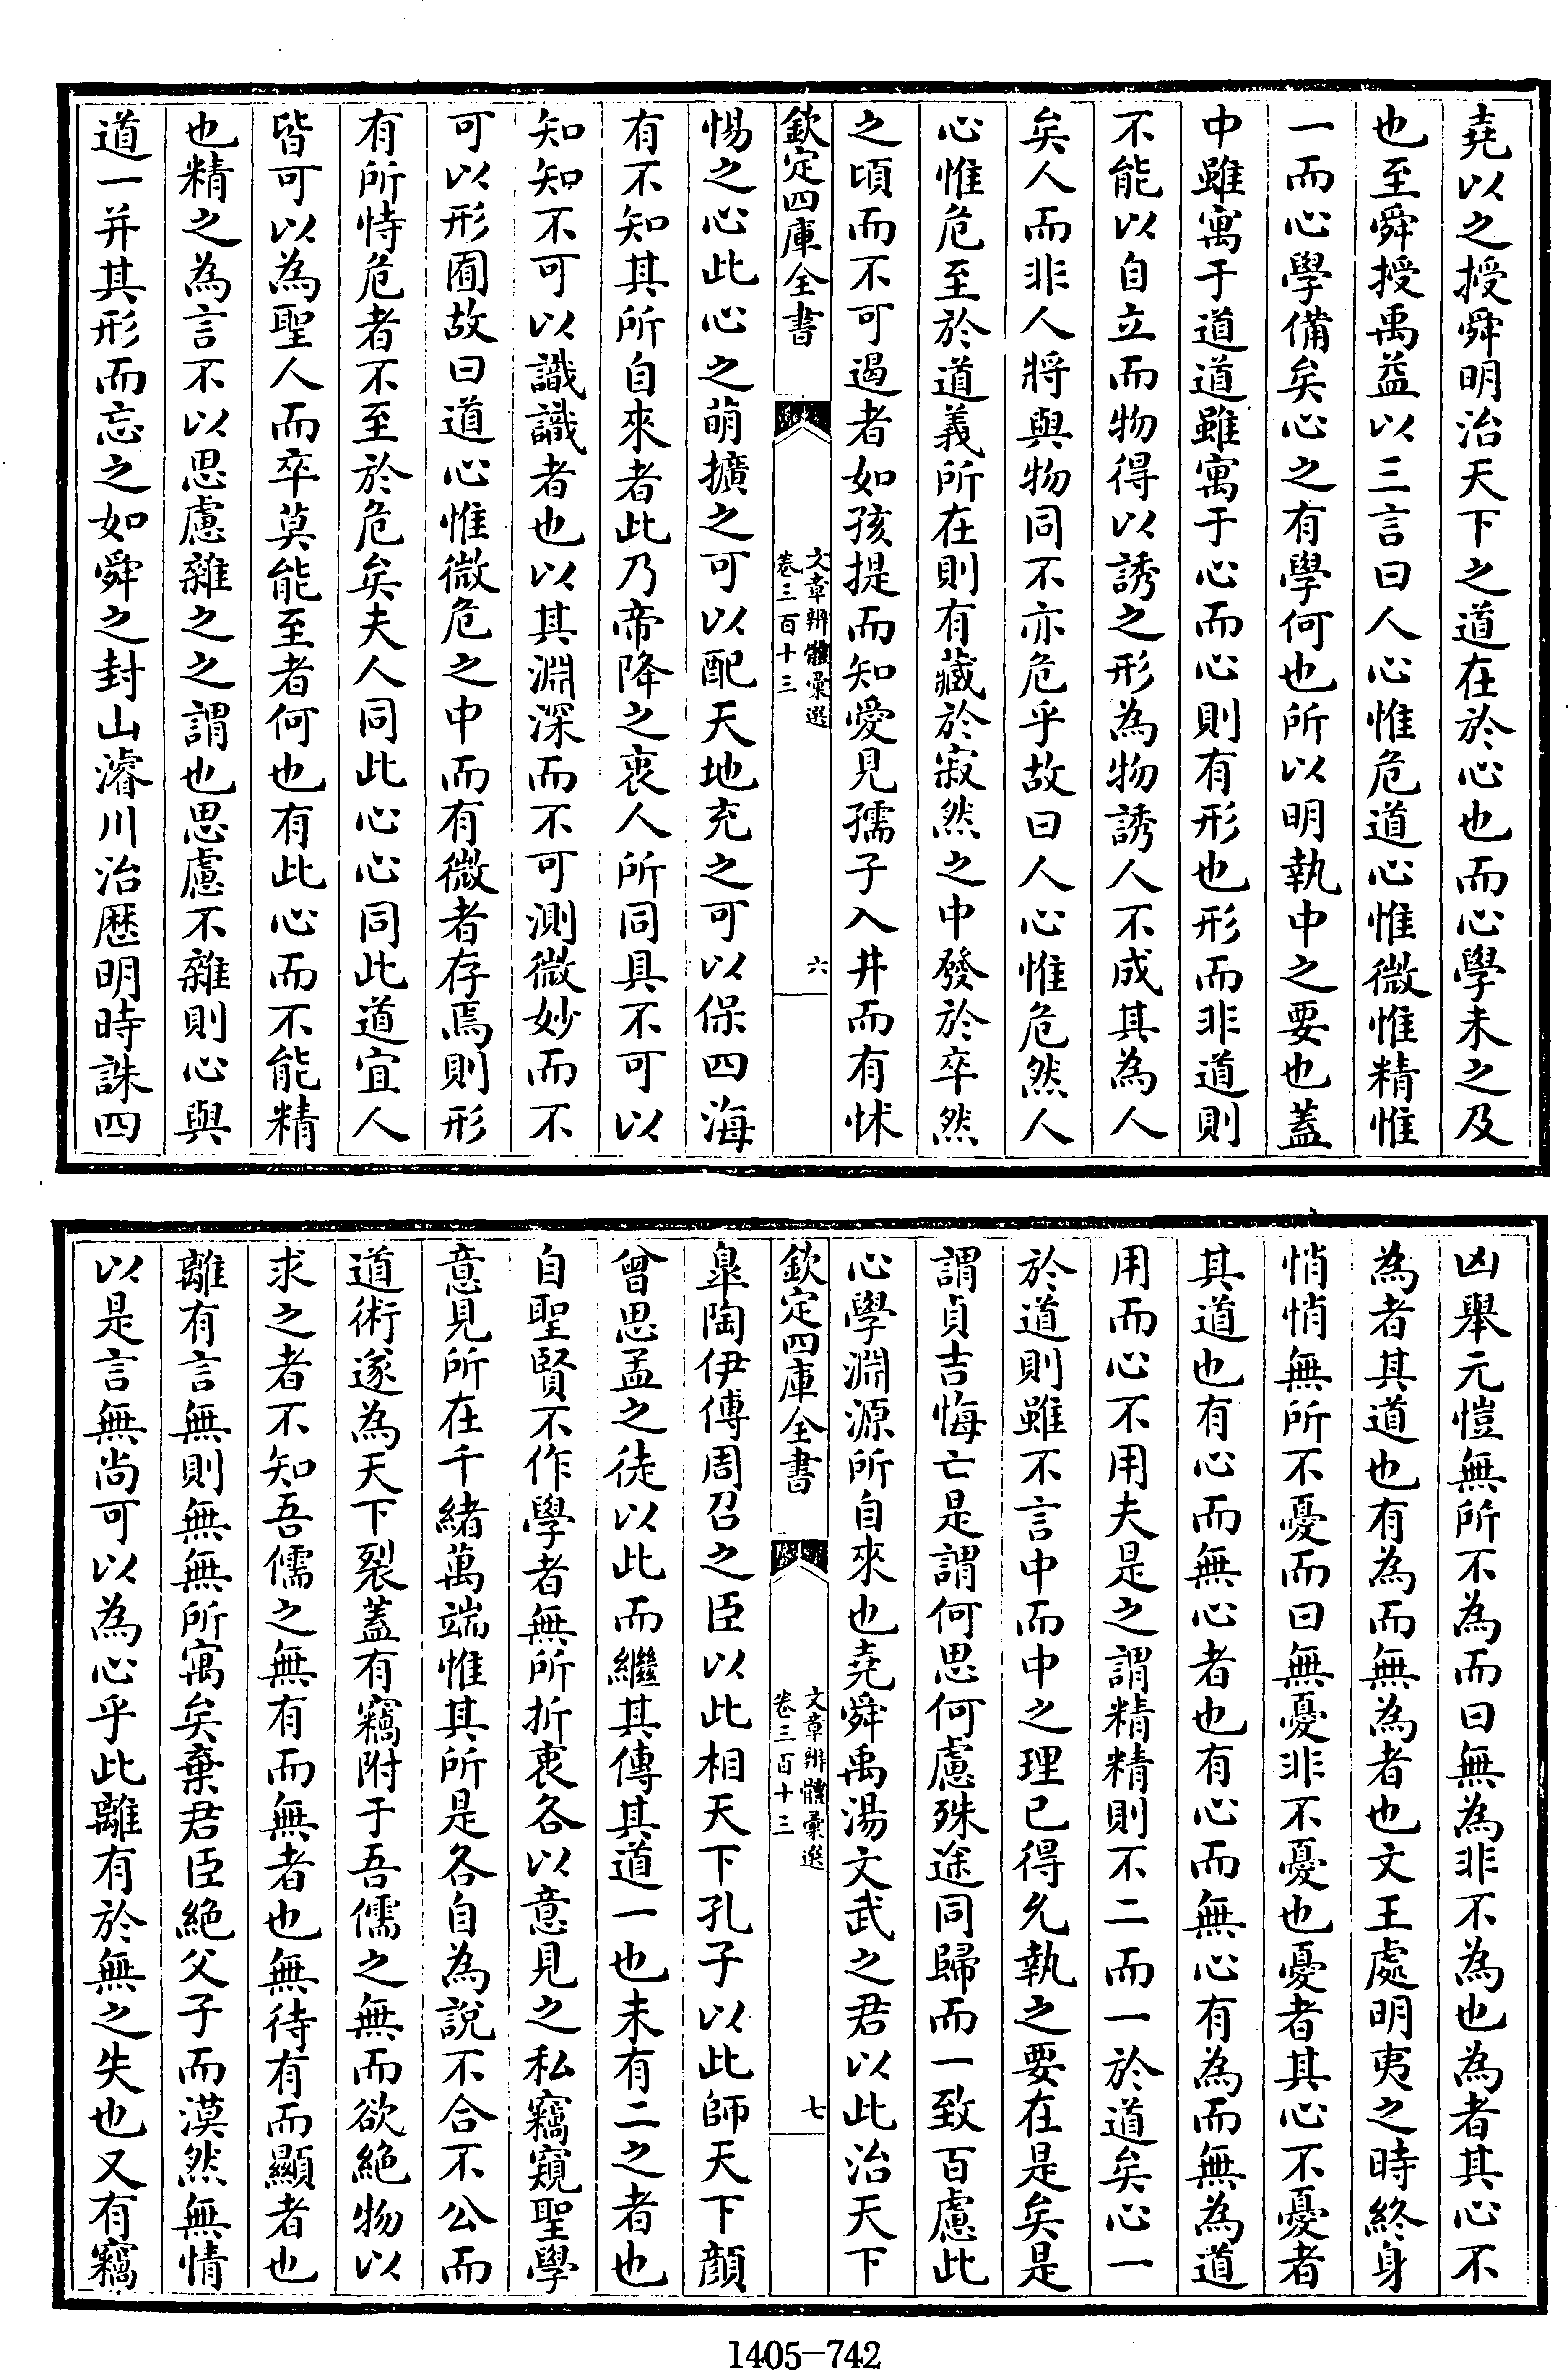 堯以之授舜明治天下之道在於心也而心學未之及
也至舜授禹益以三言曰人心惟危道心惟微惟精惟
一而心學備矣心之有學何也所以明執中之要也蓋
中雖寓于道道雖寓于心而心則有形也形而非道則
不能以自立而物得以誘之形為物誘人不成其為人
矣人而非人將與物同不亦危乎故曰人心惟危然人
心惟危至於道義所在則有藏於寂然之中發於卒然
之頃而不可遏者如孩提而知愛見孺子入井而有怵
欽定四庫全書
文章辨體彙選
卷三百十三
六
惕之心此心之萌擴之可以配天地充之可以保四海
有不知其所自來者此乃帝降之衷人所同具不可以
知知不可以識識者也以其淵深而不可測微妙而不
可以形囿故曰道心惟微危之中而有微者存焉則形
有所恃危者不至於危矣夫人同此心心同此道宜人
皆可以為聖人而卒莫能至者何也有此心而不能精
也精之為言不以思慮雜之之謂也思慮不雜則心與
道一并其形而忘之如舜之封山濬川治歷明時誅四
凶舉元愷無所不為而曰無為非不為也為者其心不
為者其道也有為而無為者也文王處明夷之時終身
悄悄無所不憂而曰無憂非不憂也憂者其心不憂者
其道也有心而無心者也有心而無心有為而無為道
用而心不用夫是之謂精精則不二而一於道矣心一
於道則雖不言中而中之理已得允執之要在是矣是
謂貞吉悔亡是謂何思何慮殊途同歸而一致百慮此
心學淵源所自來也堯舜禹湯文武之君以此治天下
欽定四庫全書
文章辨體彙選
卷三百十三
七
臯陶伊傅周召之臣以此相天下孔子以此師天下顏
曾思孟之徒以此而繼其傳其道一也未有二之者也
自聖賢不作學者無所折衷各以意見之私竊窺聖學
意見所在千緒萬端惟其所是各自為說不合不公而
道術遂為天下裂蓋有竊附于吾儒之無而欲絶物以
求之者不知吾儒之無有而無者也無待有而顯者也
離有言無則無無所寓矣棄君臣絶父子而漠然無情
以是言無尚可以為心乎此離有於無之失也又有竊
1405-742